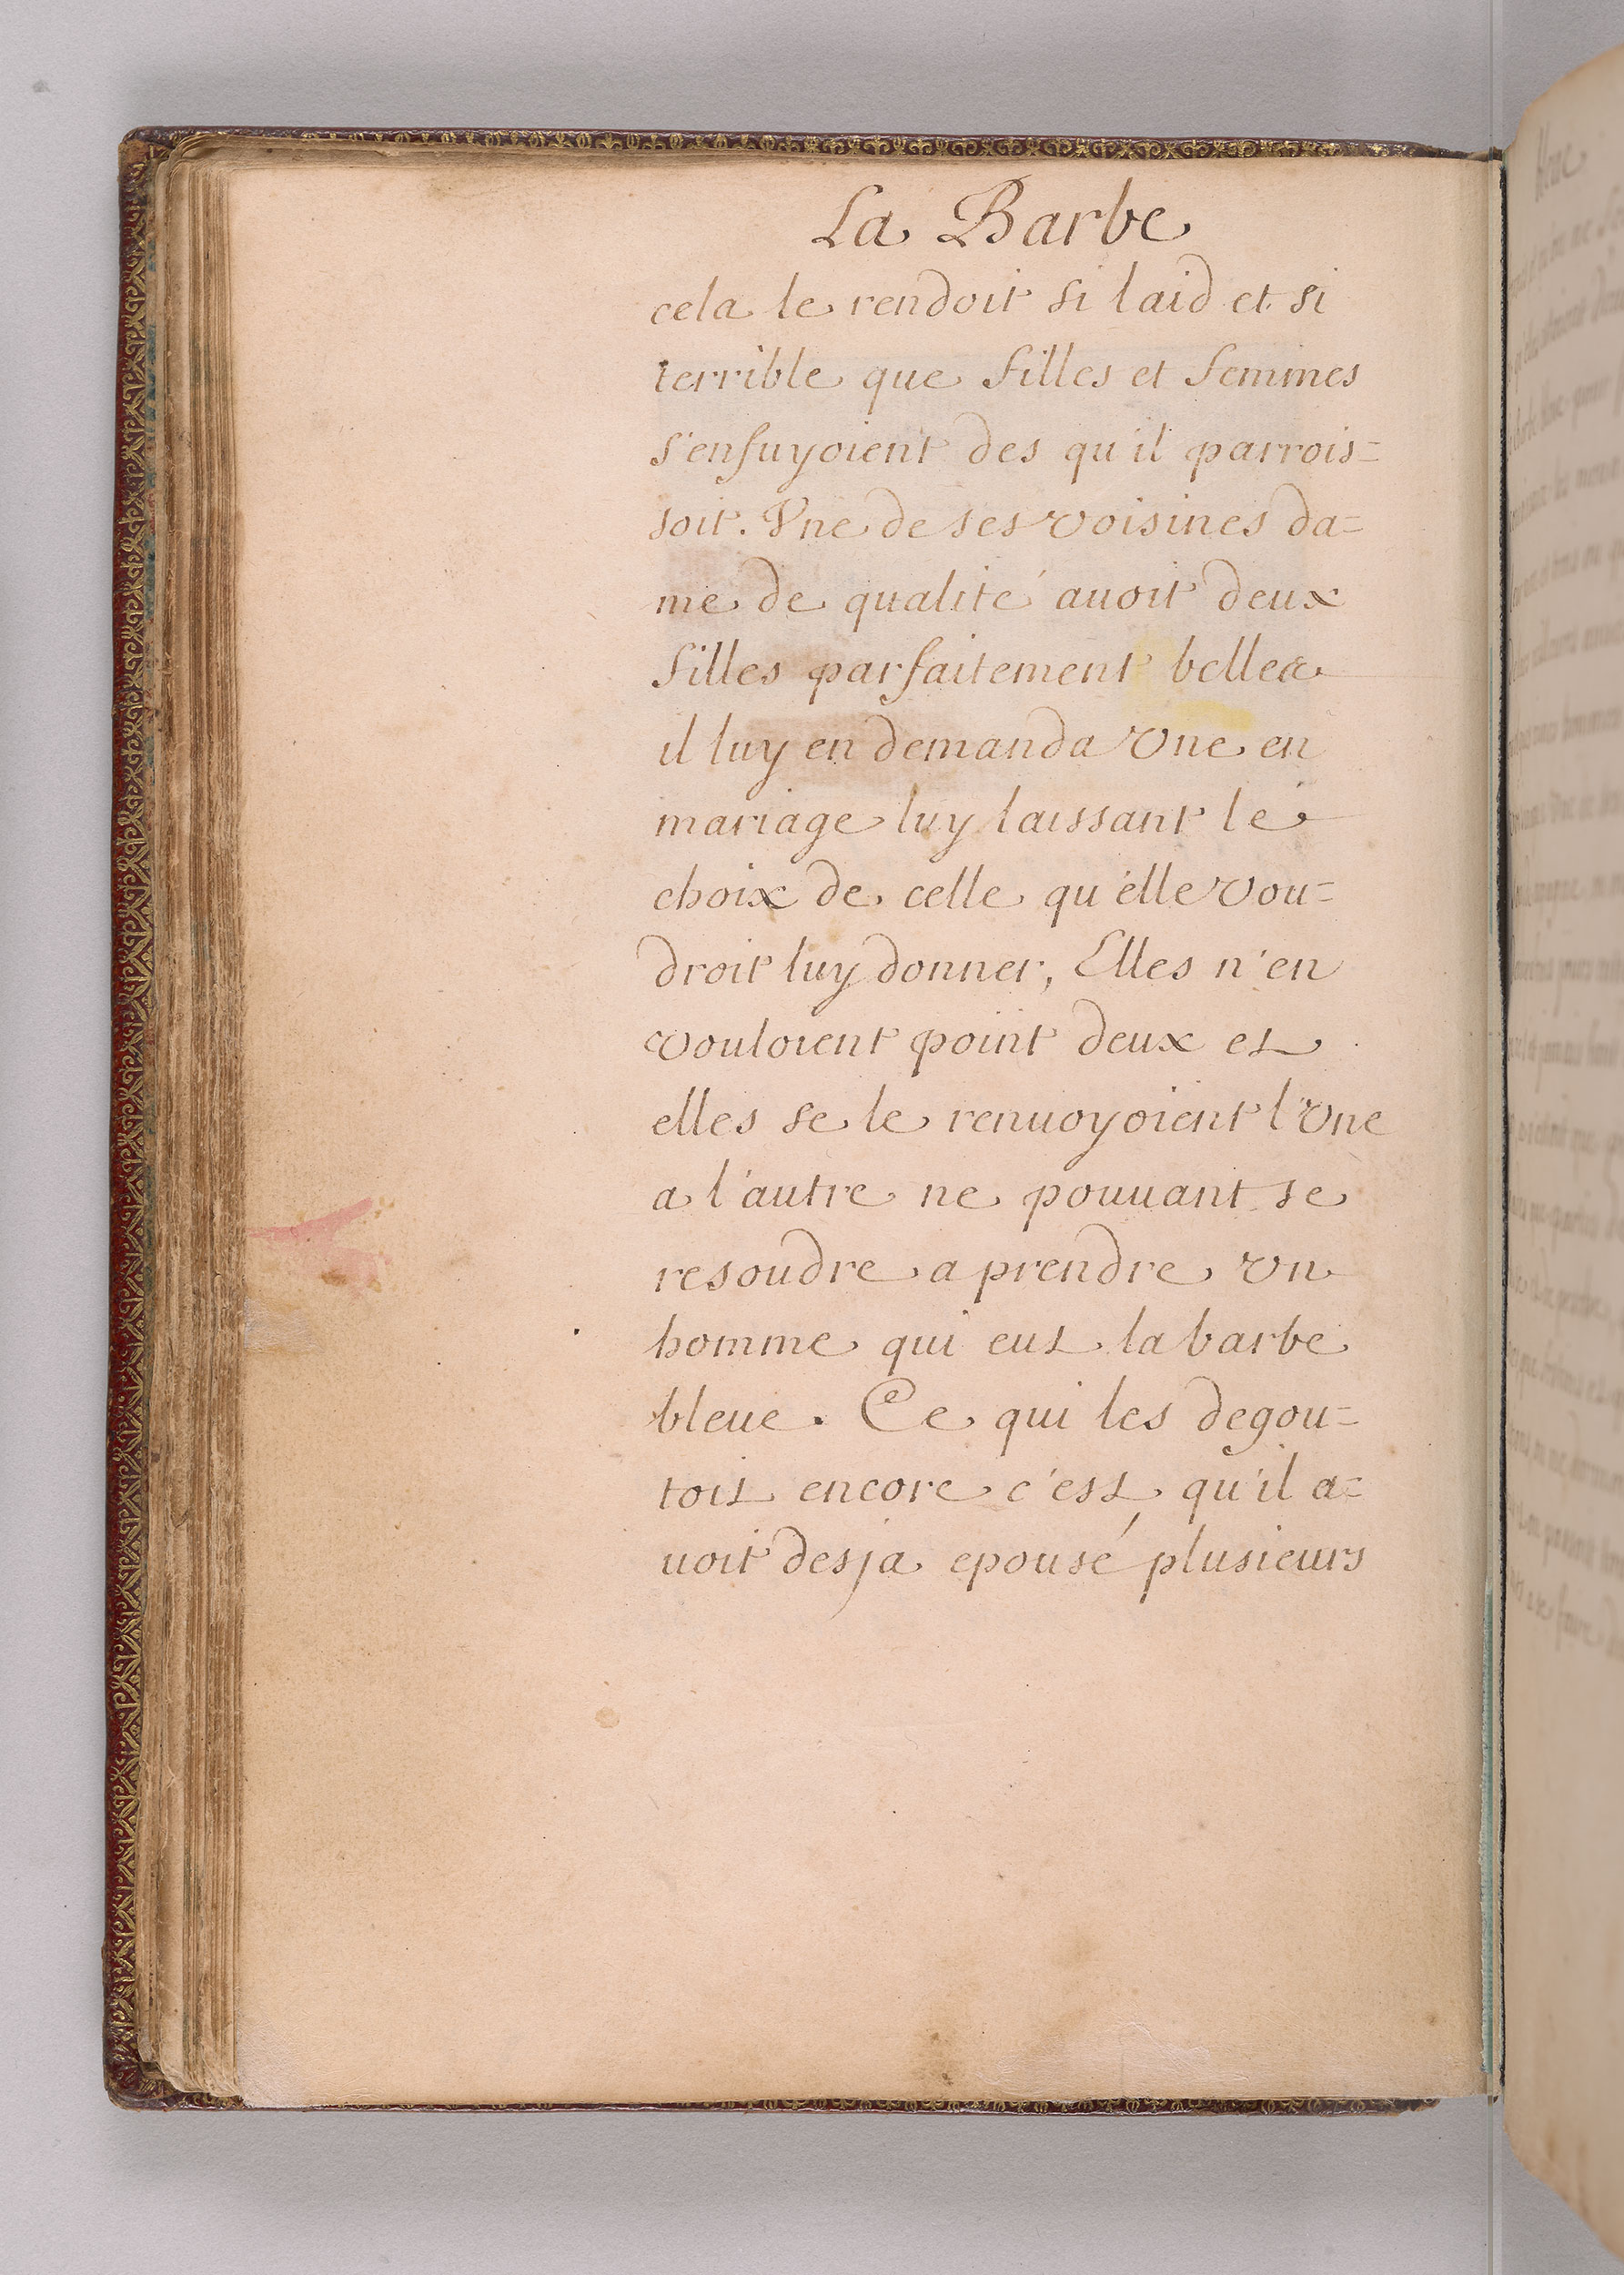 La Barbe
cela le rendoit si laid et si
terrible que filles et femmes
s'enfuyoient des qu'il parrois=
soit. Vne de ses voisines da=
me de qualité auoit deux
filles parfaitement belles
il luy en demanda vne en
mariage luy laissant le
choix de celle qu'elle vou=
droit luy donner, Elles n'en
vouloient point deux et
elles se le renuoyoient l'vne
a l'autre ne pouuant se
resoudre a prendre vn
homme qui eut la barbe
bleue. Ce qui les degou=
toit encore c'est qu'il a=
uoit desja epousé plusieurs